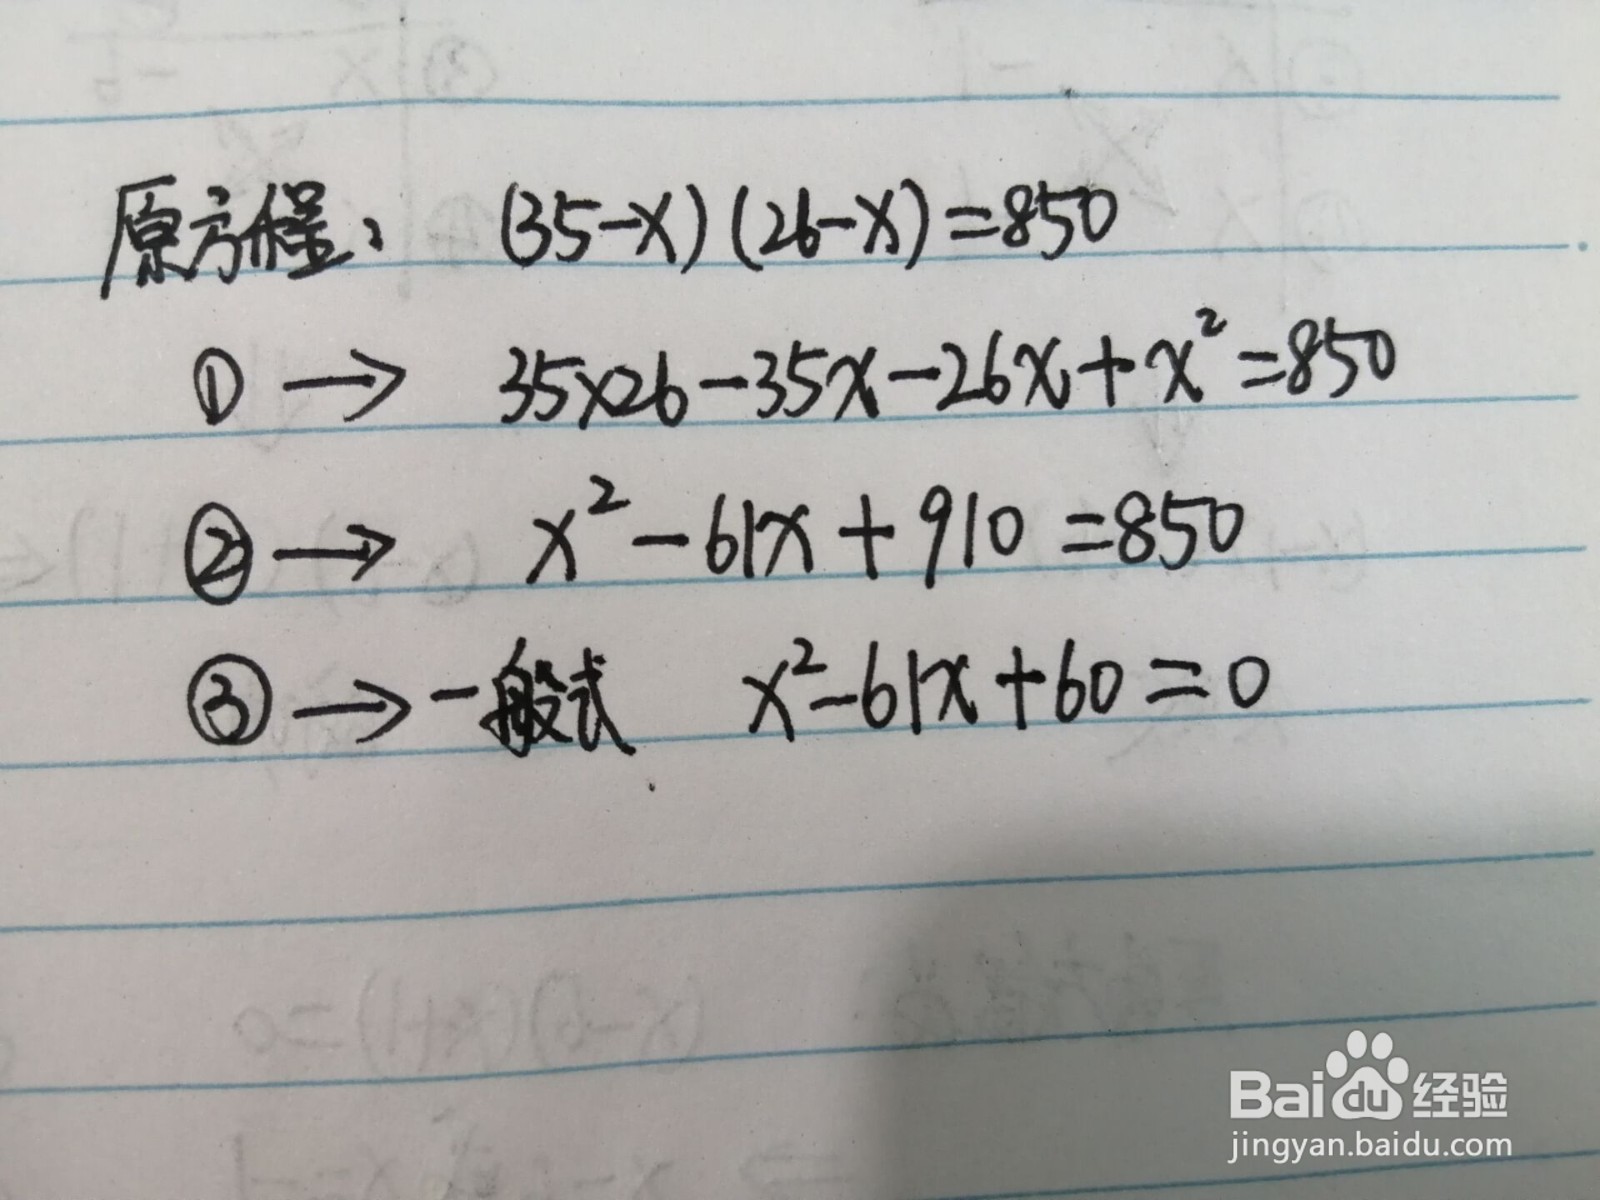 原方程: (35-x)(26-x)=850
① → 35×26-35x-26x+x²=850
② → x²-61x+910=850
③ → 一般式 x²-61x+60=0
(x-6)(x+1)=0
Baidu经验
jingyan.baidu.com